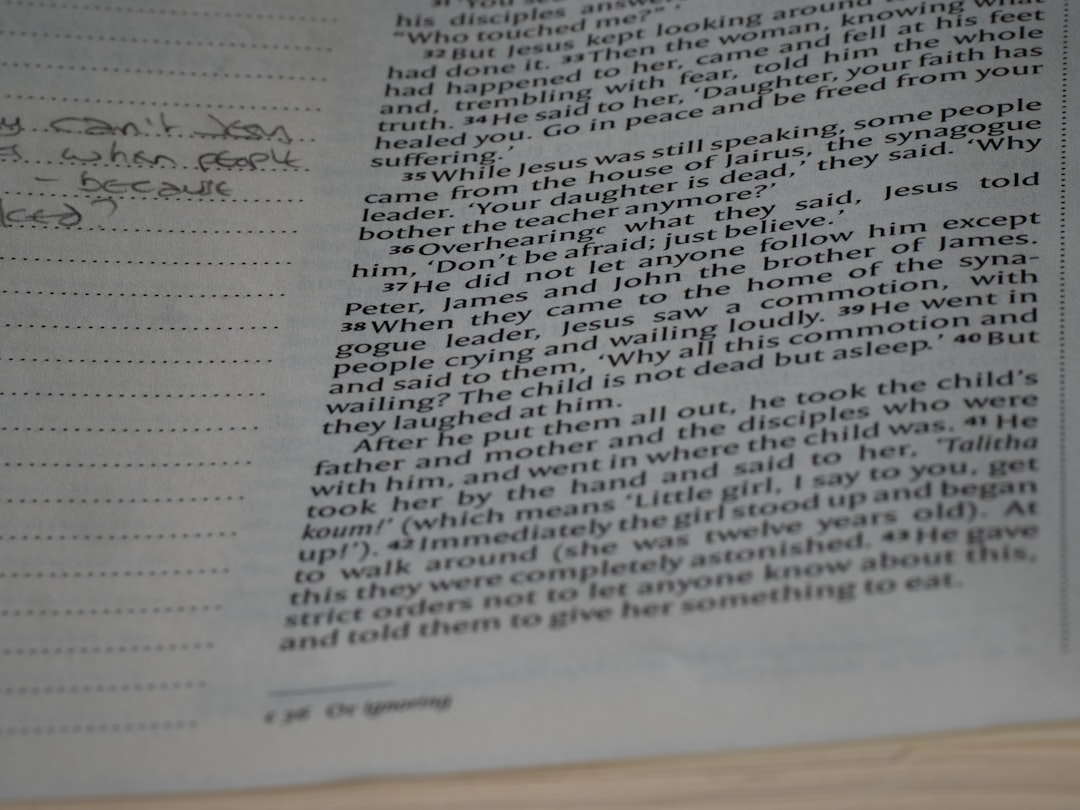 y can't
s when people
- because
31 'You see
his disciples answ
"Who touched me?"'
32 But Jesus kept looking around
had done it. 33 Then the woman, knowing what
had happened to her, came and fell at his feet
and, trembling with fear, told him the whole
truth. 34 He said to her, 'Daughter, your faith has
healed you. Go in peace and be freed from your
suffering.'
35 While Jesus was still speaking, some people
came from the house of Jairus, the synagogue
leader. 'Your daughter is dead,' they said. 'Why
bother the teacher anymore?'
36 Overhearing c what they said, Jesus told
him, 'Don't be afraid; just believe.'
37 He did not let anyone follow him except
Peter, James and John the brother of James.
38 When they came to the home of the syna-
gogue leader, Jesus saw a commotion, with
people crying and wailing loudly. 39 He went in
and said to them, 'Why all this commotion and
wailing? The child is not dead but asleep.' 40 But
they laughed at him.
After he put them all out, he took the child's
father and mother and the disciples who were
with him, and went in where the child was. 41 He
took her by the hand and said to her, 'Talitha
koum!' (which means 'Little girl, I say to you, get
up!'). 42 Immediately the girl stood up and began
to walk around (she was twelve years old). At
this they were completely astonished. 43 He gave
strict orders not to let anyone know about this,
and told them to give her something to eat.
c 36 Or Ignoring